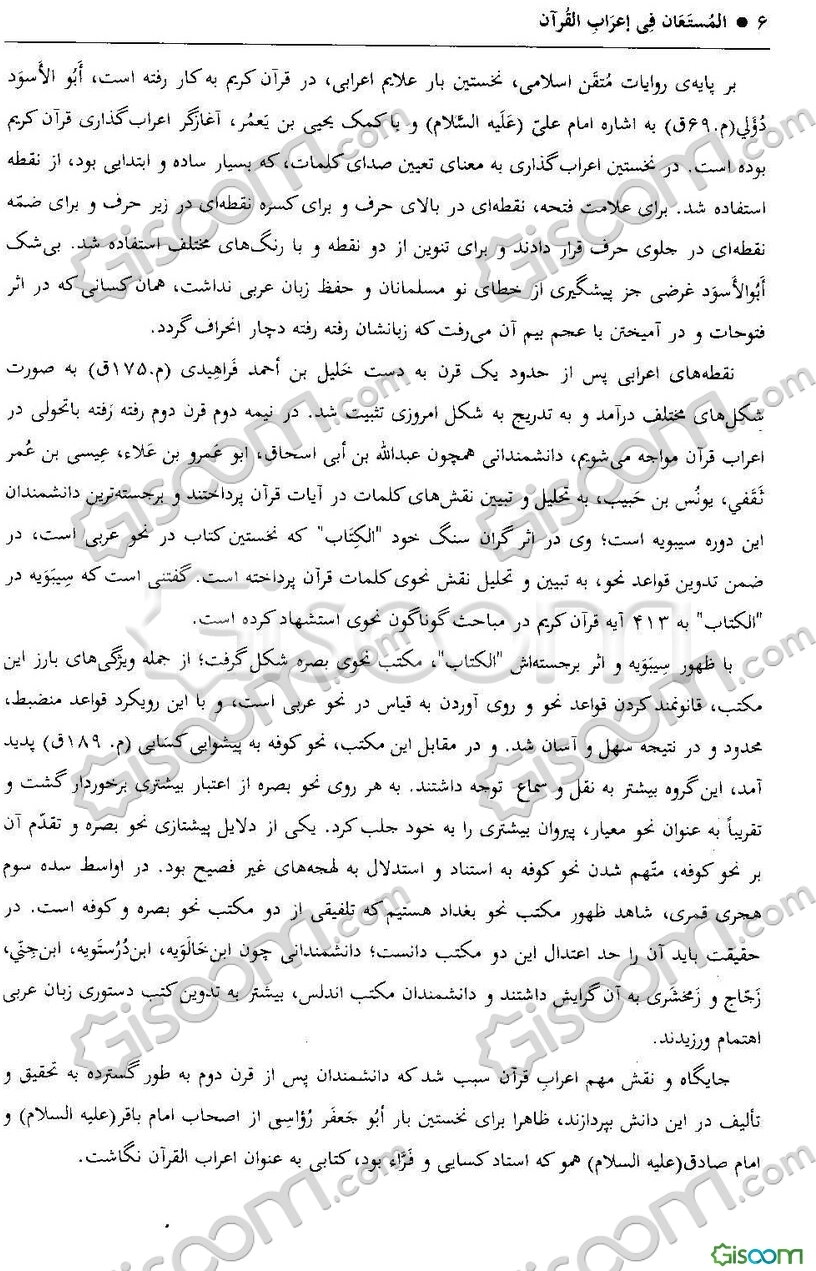 ۶ ● المُستَعَان فِی إعرَابِ القُرآن
بر پایه‌ی روایات مُتقَن اسلامی، نخستین بار علایم اعرابی، در قرآن کریم به کار رفته است، أبُو الأسوَد
دُؤَلي(م.۶۹ق) به اشاره امام علیّ (عَلَیه السَّلام) و با کمک یحیی بن یَعمُر، آغازگر اعراب‌گذاری قرآن کریم
بوده است. در نخستین اعراب‌گذاری به معنای تعیین صدای کلمات، که بسیار ساده و ابتدایی بود، از نقطه
استفاده شد. برای علامت فتحه، نقطه‌ای در بالای حرف و برای کسره نقطه‌ای در زیر حرف و برای ضمّه
نقطه‌ای در جلوی حرف قرار دادند و برای تنوین از دو نقطه و با رنگ‌های مختلف استفاده شد. بی‌شک
أبُوالأسوَد غرضی جز پیشگیری از خطای نو مسلمانان و حفظ زبان عربی نداشت، همان کسانی که در اثر
فتوحات و در آمیختن با عجم بیم آن می‌رفت که زبانشان رفته رفته دچار انحراف گردد.
نقطه‌های اعرابی پس از حدود یک قرن به دست خَلیل بن أحمد فَراهِیدی (م.۱۷۵ق) به صورت
شکل‌های مختلف درآمد و به تدریج به شکل امروزی تثبیت شد. در نیمه دوم قرن دوم رفته رَفته باتحولی در
اعراب قرآن مواجه می‌شویم، دانشمندانی همچون عبدالله بن أبی اسحاق، ابو عَمرو بن عَلاء، عِیسی بن عُمر
ثَقَفي، یونُس بن حَبیب، به تحلیل و تبیین نقش‌های کلمات در آیات قرآن پرداختند و برجسته‌ترین دانشمندان
این دوره سیبویه است؛ وی در اثر گران سنگ خود "الکِتَاب" که نخستین کتاب در نحو عربی است، در
ضمن تدوین قواعد نحو، به تبیین و تحلیل نقش نحوی کلمات قرآن پرداخته است. گفتنی است که سِیبَوَیه در
"الکتاب" به ۴۱۳ آیه قرآن کریم در مباحث گوناگون نحوی استشهاد کرده است.
با ظهور سِیبَوَیه و اثر برجسته‌اش "الکتاب"، مکتب نحوی بصره شکل گرفت؛ از جمله ویژگی‌های بارز این
مکتب، قانونمند کردن قواعد نحو و روی آوردن به قیاس در نحو عربی است، و با این رویکرد قواعد منضبط،
محدود و در نتیجه سهل و آسان شد. و در مقابل این مکتب، نحو کوفه به پیشوایی کسایی (م. ۱۸۹ق) پدید
آمد، این گروه بیشتر به نقل و سماع توجه داشتند. به هر روی نحو بصره از اعتبار بیشتری برخوردار گشت و
تقریباً به عنوان نحو معیار، پیروان بیشتری را به خود جلب کرد. یکی از دلایل پیشتازی نحو بصره و تقدّم آن
بر نحو کوفه، متّهم شدن نحو کوفه به استناد و استدلال به لهجه‌های غیر فصیح بود. در اواسط سده سوم
هجری قمری، شاهد ظهور مکتب نحو بغداد هستیم که تلفیقی از دو مکتب نحو بصره و کوفه است. در
حقیقت باید آن را حد اعتدال این دو مکتب دانست؛ دانشمندانی چون ابن‌خَالَوَیه، ابن‌دُرُستَویه، ابن‌جِنّي،
زَجّاج و زَمَخشَری به آن گرایش داشتند و دانشمندان مکتب اندلس، بیشتر به تدوین کتب دستوری زبان عربی
اهتمام ورزیدند.
جایگاه و نقش مهم اعرابِ قرآن سبب شد که دانشمندان پس از قرن دوم به طور گسترده به تحقیق و
تألیف در این دانش بپردازند، ظاهرا برای نخستین بار أبُو جَعفَر رُؤاسِی از اصحاب امام باقر(علیه السلام) و
امام صادق(علیه السلام) همو که استاد کسایی و فَرَّاء بود، کتابی به عنوان اعراب القرآن نگاشت.
Gisoom